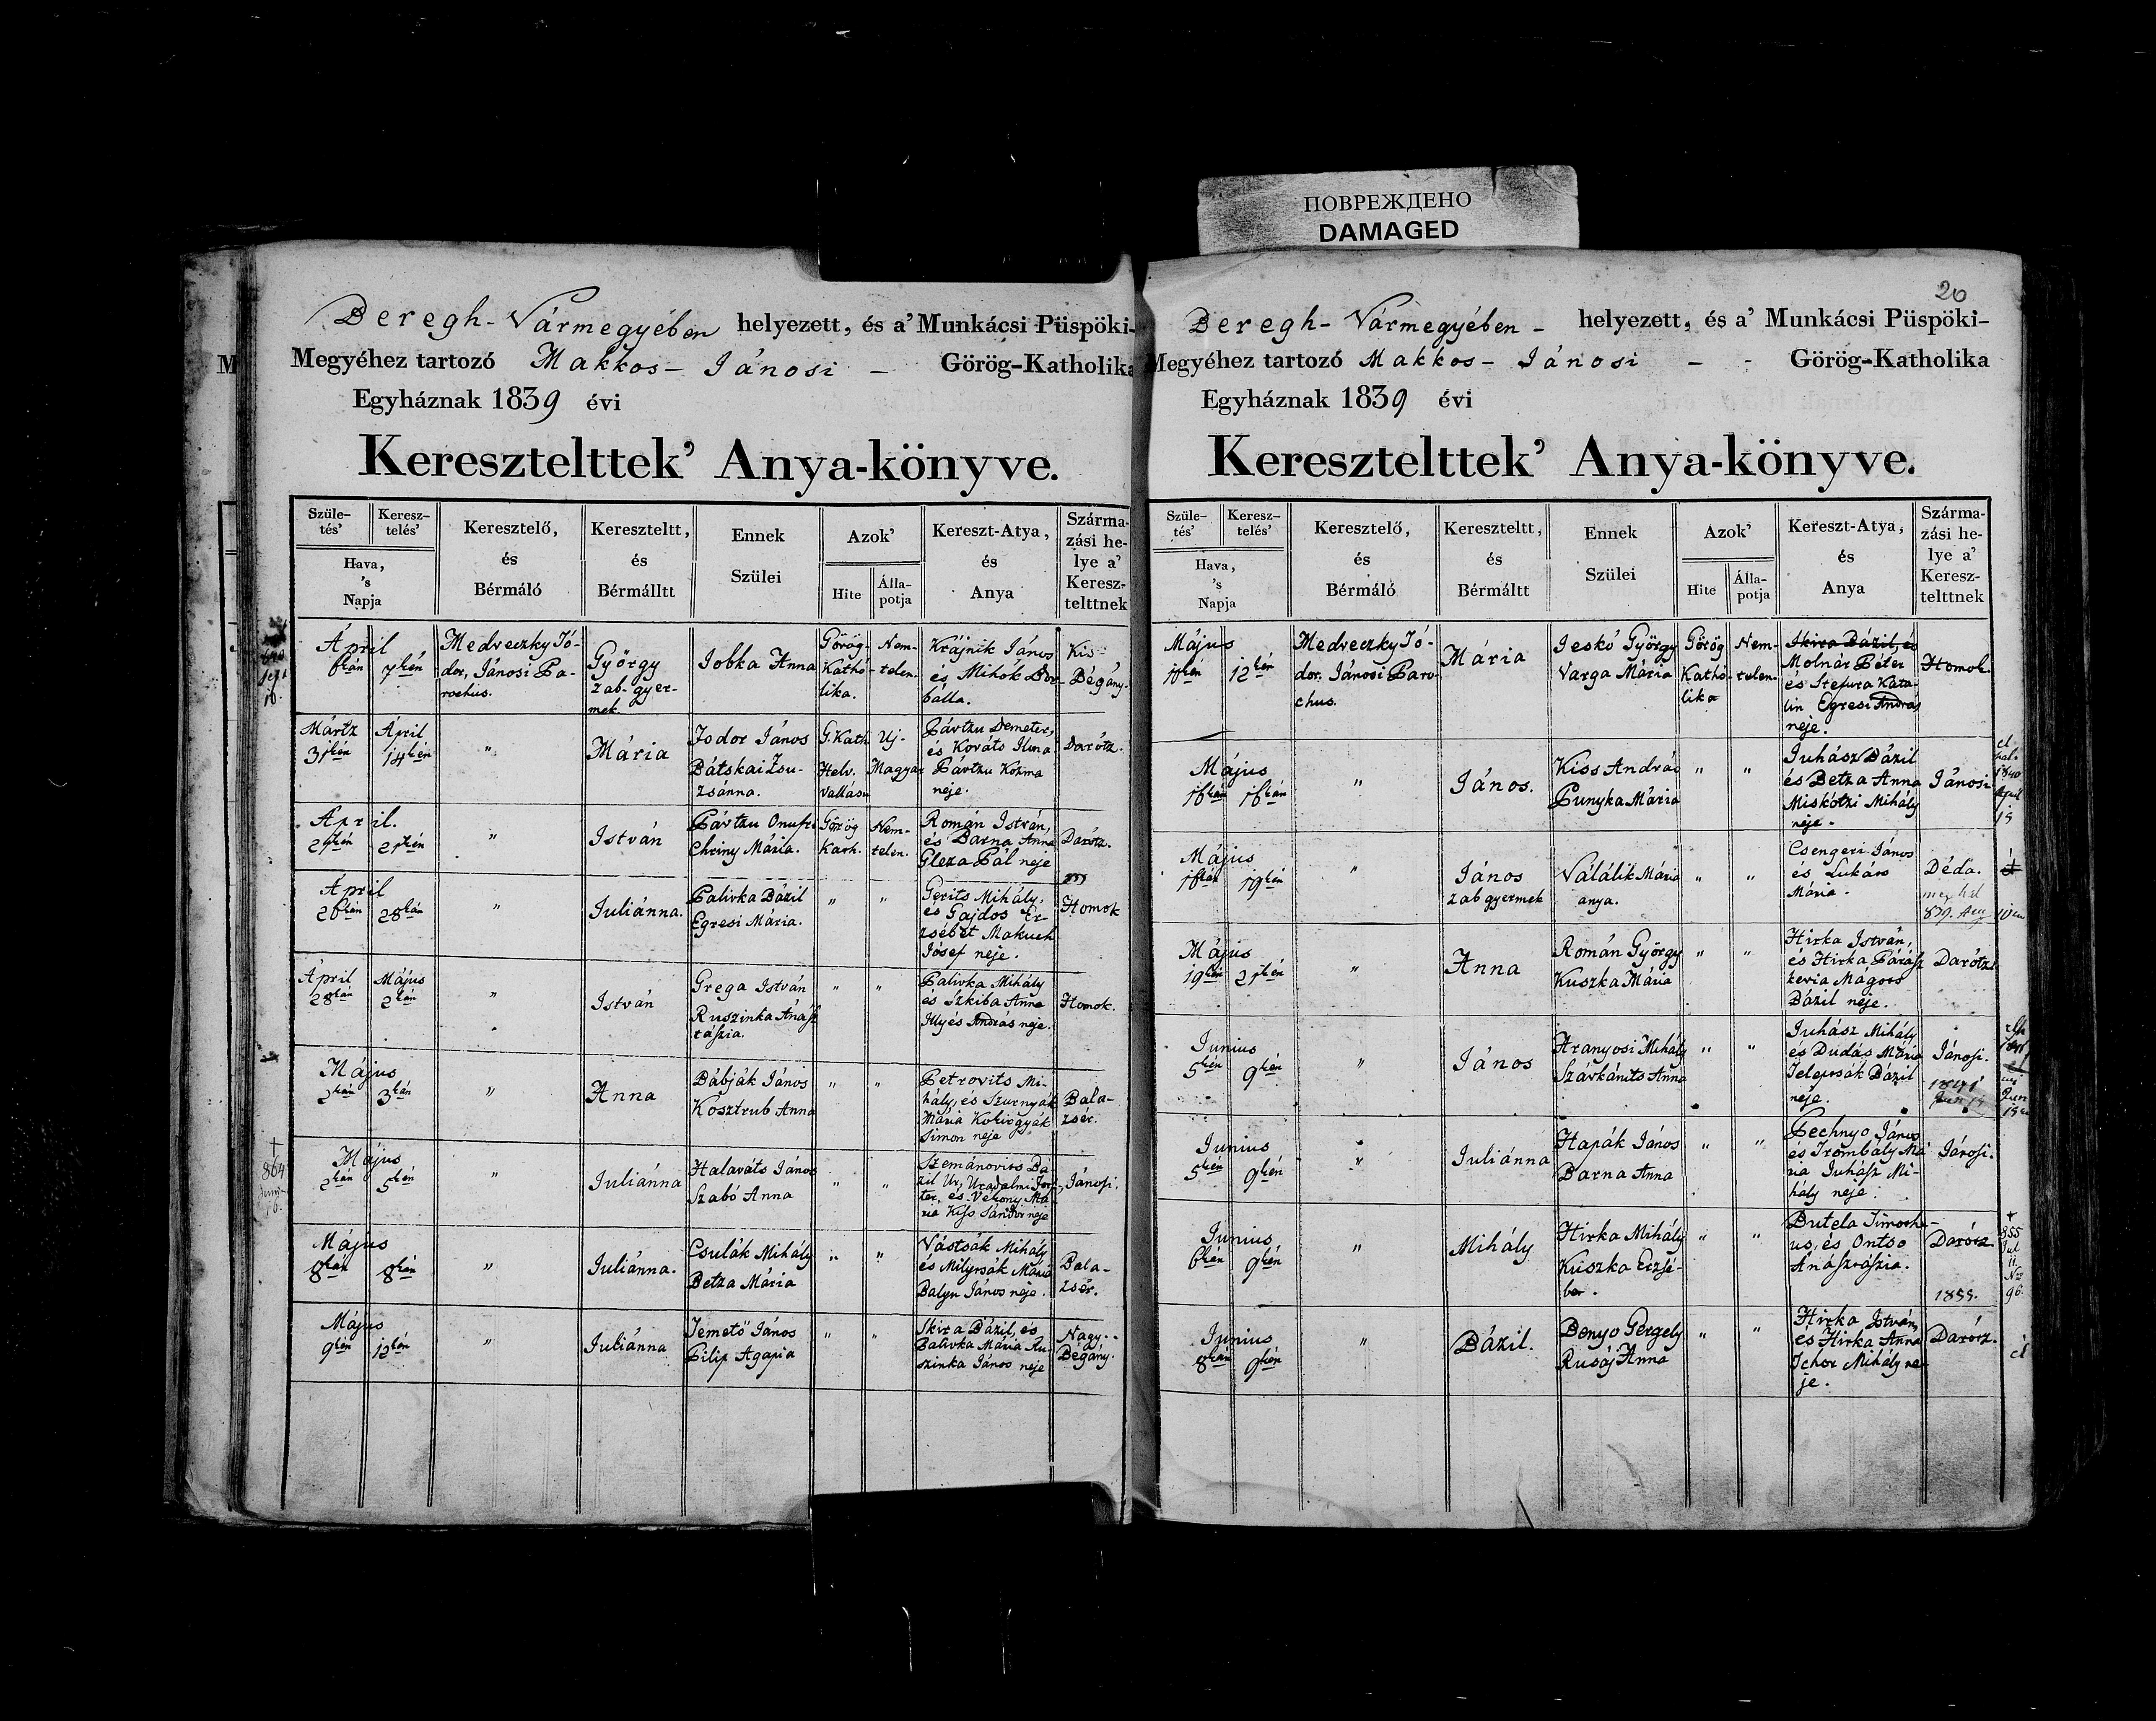 ПОВРЕЖДЕНО
DAMAGED
Beregh-Vármegyében helyezett, és a' Munkácsi Püspöki-
Megyéhez tartozó Makkos-Jánosi - Görög-Katholika
Egyháznak 1839 évi
Keresztelttek' Anya-könyve.
Szüle-
tés'
Keresz-
telés'
Hava,
's
Napja
Keresztelő,
és
Bérmáló
Kereszteltt,
és
Bérmálltt
Ennek
Szülei
Azok'
Hite
Álla-
potja
Kereszt-Atya,
és
Anya
Szárma-
zási he-
lye a'
Keresz-
telttnek
April
6kán 7kén
Medveczky Tó-
dor, Jánosi Pa-
rochus.
György
zab-gyer-
mek.
Jobka Anna
Görög
Katho-
lika.
Nem-
telen.
Krájnik János
és Mihók Bor-
bálla.
Kis-
Bégány.
Mártz
31kén
April
14kén
"
Mária
Todor János
Bátskai Zsu-
zsánna.
G. Kath
Helv.
vallásu
Uj-
Magyar
Pártzu Demeter,
és Kováts Ilona
Pártzu Kozma
neje.
Darótz.
April.
21kén
"
István
Pártzu Onufri
Chriny Mária.
Görög
Kath.
Nem-
telen.
Román István,
és Barna Anna
Gleza Pál neje
Darótz.
April
26kán 28kán
"
Juliánna.
Palivka Bázil
Egresi Mária.
" "
Gerits Mihály,
és Gajdos Er-
zsébet Makuch
Jósef neje.
Homok
April
28kán
Május
2kán
"
István
Grega István
Ruszinka Anász
tászia.
" "
Palivka Mihály
és Szkiba Anna
Illyés András neje.
Homok.
Május
2kán 3kán
"
Anna
Bábják János
Kosztrub Anna
" "
Petrovits Mi-
hály, és Szurnyák
Mária
Simon neje
Bala-
zsér.
864
Május
2kán 5kén
"
Juliánna
Halaváts János
Szabó Anna
" "
Szemánovits Ba-
zil Ur, Uradalmi
és Vékony Má-
ria Kiss Sándor neje
Jánosi.
Május
8kán 8kán
"
Juliánna.
Csulák Mihály
Betza Mária
" "
Vástsák Mihály
és Mária
Balyn János neje.
Bala-
zsér.
Május
9kén 12kén
"
Juliánna
Temető János
Filip Agapia
" "
Skira Bázil, és
Palivka Mária Ru-
szinka János neje
Nagy-
Bégány.
20
Beregh-Vármegyében - helyezett, és a' Munkácsi Püspöki-
Megyéhez tartozó Makkos-Jánosi - - Görög-Katholika
Egyháznak 1839 évi
Keresztelttek' Anya-könyve.
Szüle-
tés'
Keresz-
telés'
Hava,
's
Napja
Keresztelő,
és
Bérmáló
Kereszteltt,
és
Bérmáltt
Ennek
Szülei
Azok'
Hite
Álla-
potja
Kereszt-Atya,
és
Anya
Szárma-
zási he-
lye a'
Keresz-
telttnek
Május
12kén
Medveczky Tó-
dor, Jánosi Paro-
chus.
Mária
Jeskó György
Varga Mária
Görög
Kathó-
lika
Nem-
telen.
Skira Bázil, és
Molnár Péter
és Stefura Kata-
lin Egresi András
neje.
Homok.
Május
16kán 16kán
"
János.
Kiss András
Punyka Mária
" "
Juhász Bázil
és Betza Anna
Miskótzi Mihály
neje.
Jánosi
Május
16kán 19kén
"
János
zab gyermek
Válálik Mária
anya.
" "
Csengeri János
és Lukáts
Mária.
Déda.
Május
19kén 21kén
"
Anna
Román György
Kuszka Mária
" "
Hirka István,
és Hirka Párász
kevia Mágocs
Bázil neje.
Darótz.
Junius
5kén 9kén
"
János
Aranyosi Mihály
Szárkánits Anna
" "
Juhász Mihály
és Dudás Mária
Telepsák Bázil
neje.
Jánosi.
1841
Junius
5kén 9kén
"
Juliánna
Hapák János
Barna Anna
" "
Pechnyo János
és Trombály Má-
ria Juhász Mi-
hály neje.
Jánosi.
Junius
6kán 9kén
"
Mihály
Hirka Mihály
Kuszka Erzsé-
bet.
" "
Butela Timoth-
us, és Ontso
Anásztászia.
Darócz.
1855.
855
Jul
11
Nro
96.
Junius
8kán 9kén
"
Bázil.
Benyo Gergely
Rusáj Anna
" "
Hirka István,
és Hirka Anna
Tchor Mihály ne-
je.
Darócz.